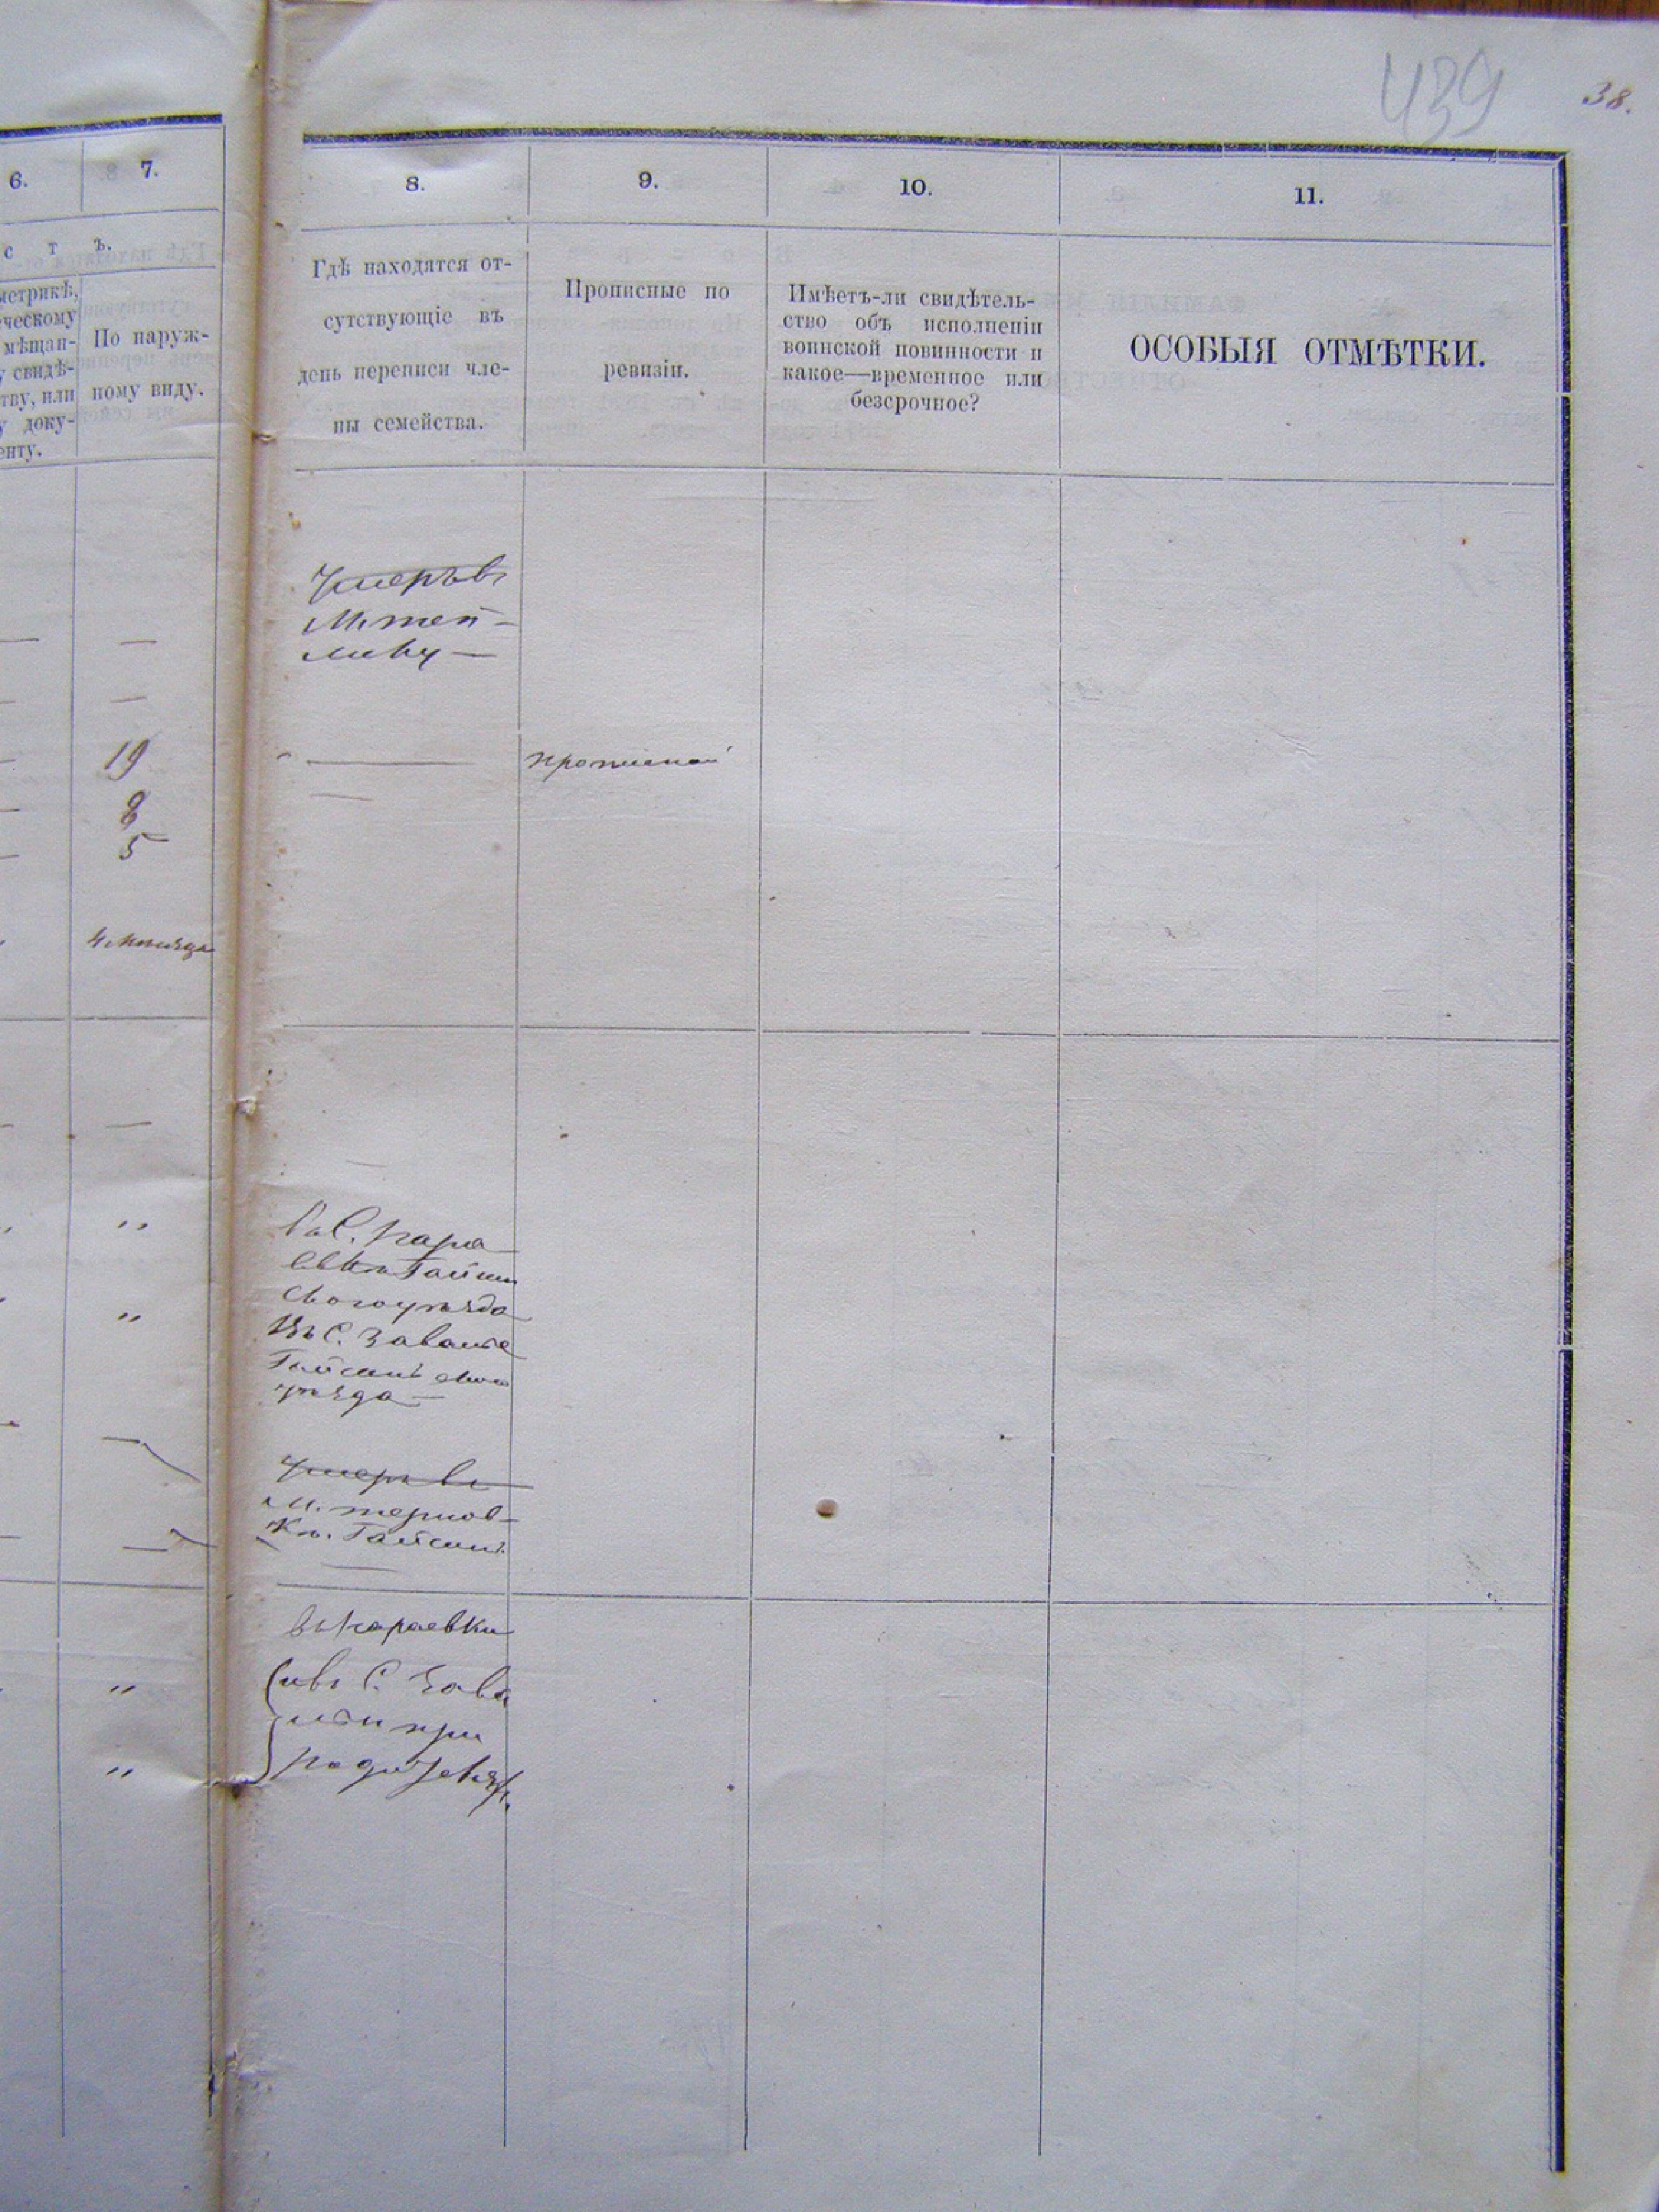 439
38.
6.
7.
8.
9.
10.
11.
с т ъ.
метрикѣ,
ческому
мѣщан-
у свидѣ-
тву, или
у доку-
енту.
По наруж-
ному виду.
Гдѣ находятся от-
сутствующіе въ
день переписи чле-
ны семейства.
Прописные по
ревизіи.
Имѣетъ-ли свидѣтель-
ство объ исполненіи
воинской повинности и
какое—временное или
безсрочное?
ОСОБЫЯ ОТМѢТКИ.
Умеръ въ
М. теп-
лику —
— —
— —
19
— прописной
8
5
4 мѣсяца
Въ С. Кара
евкѣ Гайсин
скаго уѣзда
Въ С. Завалье
Гайсинскаго
уѣзда —
Умеръ въ
м. тернов-
кѣ. Гайсин.
въ Караевки
и въ С. Зава
при